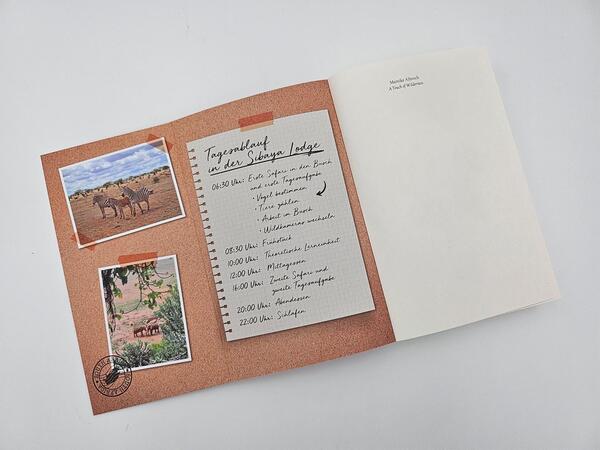 Tagesablauf
in der Sibaya Lodge
06:30 Uhr: Erste Safari in den Busch
und erste Tagesaufgabe
• Vögel bestimmen
• Tiere zählen
• Arbeit im Busch
• Wildkameras wechseln
08:30 Uhr: Frühstück
10:00 Uhr: Theoretische Lerneinheit
12:00 Uhr: Mittagessen
16:00 Uhr: Zweite Safari und
zweite Tagesaufgabe
20:00 Uhr: Abendessen
22:00 Uhr: Schlafen
Mareike Allnoch
A Touch of Wilderness